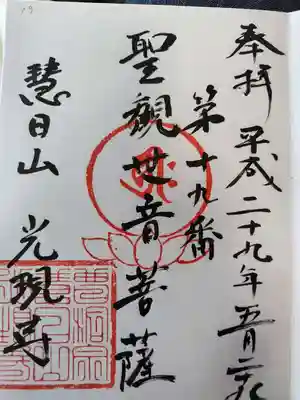 奉拝 平成二十九年五月二
第十九番
聖觀世音菩薩
慧日山 光現寺